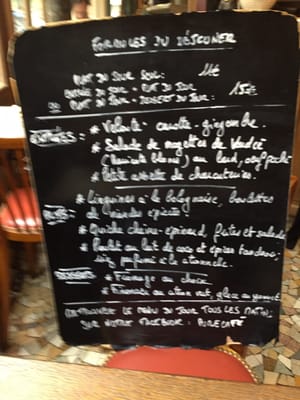 FORMULES DU DÉJEUNER
PLAT DU JOUR SEUL: 11€
ENTRÉE DU JOUR - PLAT DU JOUR
OU PLAT DU JOUR - DESSERT DU JOUR: 15€
ENTRÉES:
* Velouté carotte-gingembre.
* Salade de mogettes de Vendée
(haricots blancs) au lard, oeuf poché
* Petite assiette de charcuteries.
* Linguines à la bolognaise, boulettes
PLATS: de viandes épicées
* Quiche chèvre-épinard, frites et salade
* Poulet au lait de coco et épices tandoori,
riz parfumé à la citronnelle.
DESSERTS: * Fromage au choix
* au citron vert, glace au yaourt
RETROUVEZ LE MENU DU JOUR TOUS LES MATINS
SUR NOTRE FACEBOOK: PURE CAFÉ